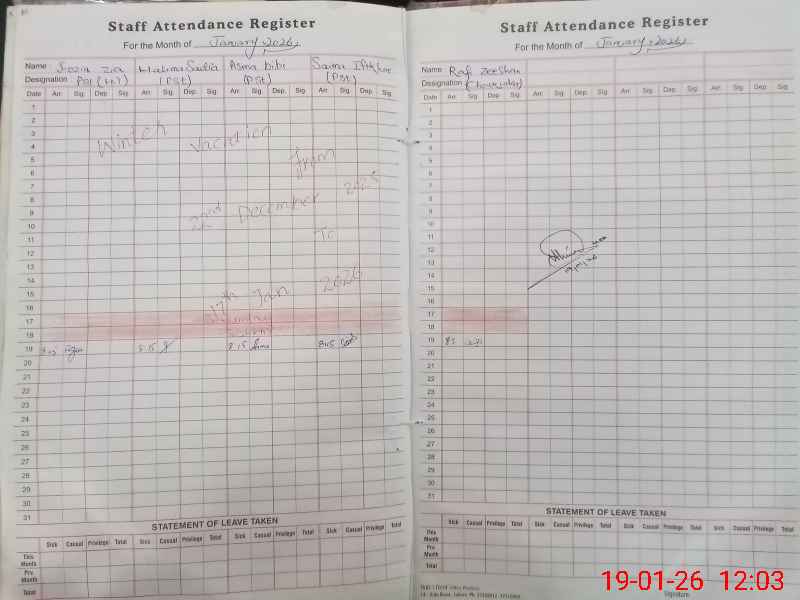 Staff Attendance Register
For the Month of January 2026
Name : Fozia Zia Halima Sadia Asma bibi Saima Iftikhar
Designation PST (PST) (PST) (PST)
Date Arr. Sig. Dep. Sig. Arr. Sig. Dep. Sig. Arr. Sig. Dep. Sig. Arr. Sig. Dep. Sig.
1
2
3 Winter Vacation
4
5 from
6
7
8 2025
9 22nd December
10
11 To
12
13
14
15 17th Jan 2026
16
17 Sunday
18
19 8:15 8:15 8:15
20
21
22
23
24
25
26
27
28
29
30
31
STATEMENT OF LEAVE TAKEN
Sick Casual Privilege Total Sick Casual Privilege Total Sick Casual Privilege Total Sick Casual Privilege Total
This Month
Pre Month
Total
Staff Attendance Register
For the Month of January, 2026
Name : Rafi Zeeshan
Designation
Date Arr. Sig. Dep. Sig. Arr. Sig. Dep. Sig. Arr. Sig. Dep. Sig. Arr. Sig. Dep. Sig.
1
2
3
4
5
6
7
8
9
10
11
12
13
14
15
16
17
18
19
20
21
22
23
24
25
26
27
28
29
30
31
STATEMENT OF LEAVE TAKEN
Sick Casual Privilege Total Sick Casual Privilege Total Sick Casual Privilege Total Sick Casual Privilege Total
This Month
Pre Month
Total
Signature
19-01-26 12:03